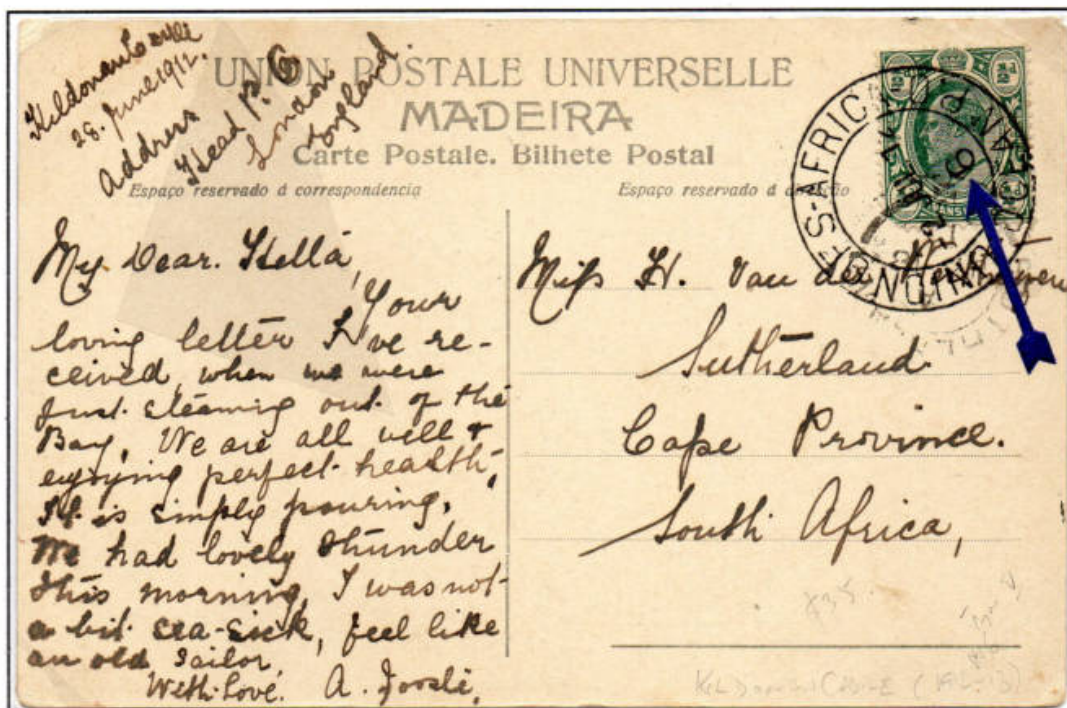 Kildonan Castle
28. June 1912.
Address
Head P.O
London
England.
UNION POSTALE UNIVERSELLE
MADEIRA
Carte Postale. Bilhete Postal
Espaço reservado á correspondencia
Espaço reservado á
My Dear. Stella,
Your
loving letter I've re-
ceived, when we were
just steaming out of the
Bay, We are all well &
enjoying perfect health,
It is simply pouring,
We had lovely thunder
this morning, I was not
a bit sea-sick, feel like
an old Sailor
With love. A.
Miss H. Van der
Sutherland
Cape Province.
South Africa,
UNION OF S-AFRICA